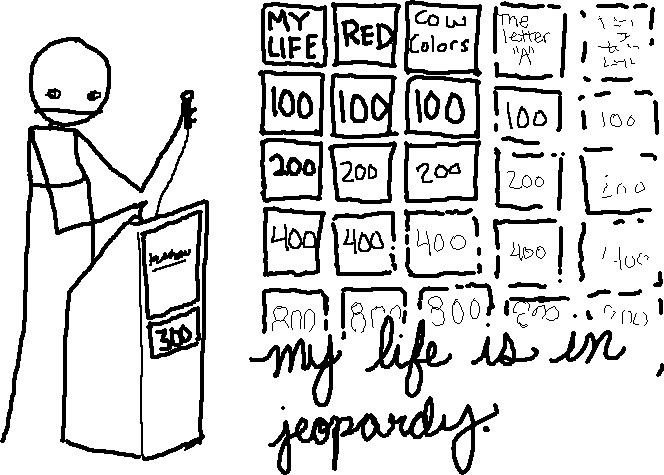 MY LIFE RED COW Colors The letter "A"
100 100 100 100 100
200 200 200 200
400 400 400 400 400
800 800 800 800
300
my life is in
jeopardy.